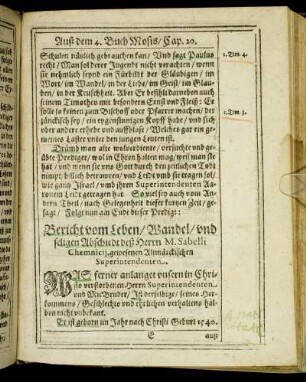 Auß dem 4. Buch Mosis / Cap. 20.
Schulen nützlich gebrauchen kan / Vnd sagt Paulus
recht / Man sol derer Jugend nicht verachten / wenn
sie nehmlich seynd ein Fürbild der Gläubigen / im
Wort / im Wandel / in der Liebe / im Geist / im Glau-
ben / in der Keuschheit. Aber Er befihlt darneben auch
seinem Timotheo mit besondern Ernst vnd Fleiß: Er
solle ja keinen zum Bischoff oder Pfarrer machen / der
ein
meines Laster vnter den jungen Leuten ist.
1. Tim. 4.
1. Tim. 3.
Drümb man alte wolverdiente / versuchte vnd ge-
übte Prediger / wol in Ehren halten mag / weil man sie
hat / vnd wenn sie von Gott durch den zeitlichen Tod
Israel / vmb ihren Superintendenten Aa-
ronem Leid getragen hat. So viel sey auch vom An-
dern Theil / nach Gelegenheit dieser kurtzen Zeit / ge-
sagt / Folgt nun am Ende dieser Predigt:
Bericht vom Leben / Wandel / vnd
seligen Abschiedt deß Herrn M. Sabelli
Chemnicij, gewesenen Altmärckischen
Superintendenten.
WAS ferner anlanget vnsern in Chri-
sto verstorbenen Herrn Superintendenten
vnd Mit Bruder / Ist derselbige / seines Her-
kommens / Geschlechts vnd ehrlichen verhaltens hal-
ben nicht vnbekant.
Er ist geborn im Jahr nach Christi Geburt 1540.
auß